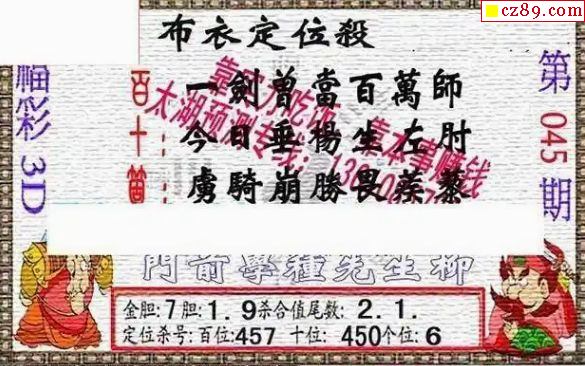 cz89.com
布衣定位殺
福彩3D
第045期
百十個
一劍曾當百萬師
今日垂楊生左肘
虜騎崩勝畏蒺藜
靠实力吃饭 靠本事赚钱
太湖预测专线:13
門前學種先生柳
金胆:7胆:1.9杀合值尾数:2.1.
定位杀号:百位:457 十位:450个位:6